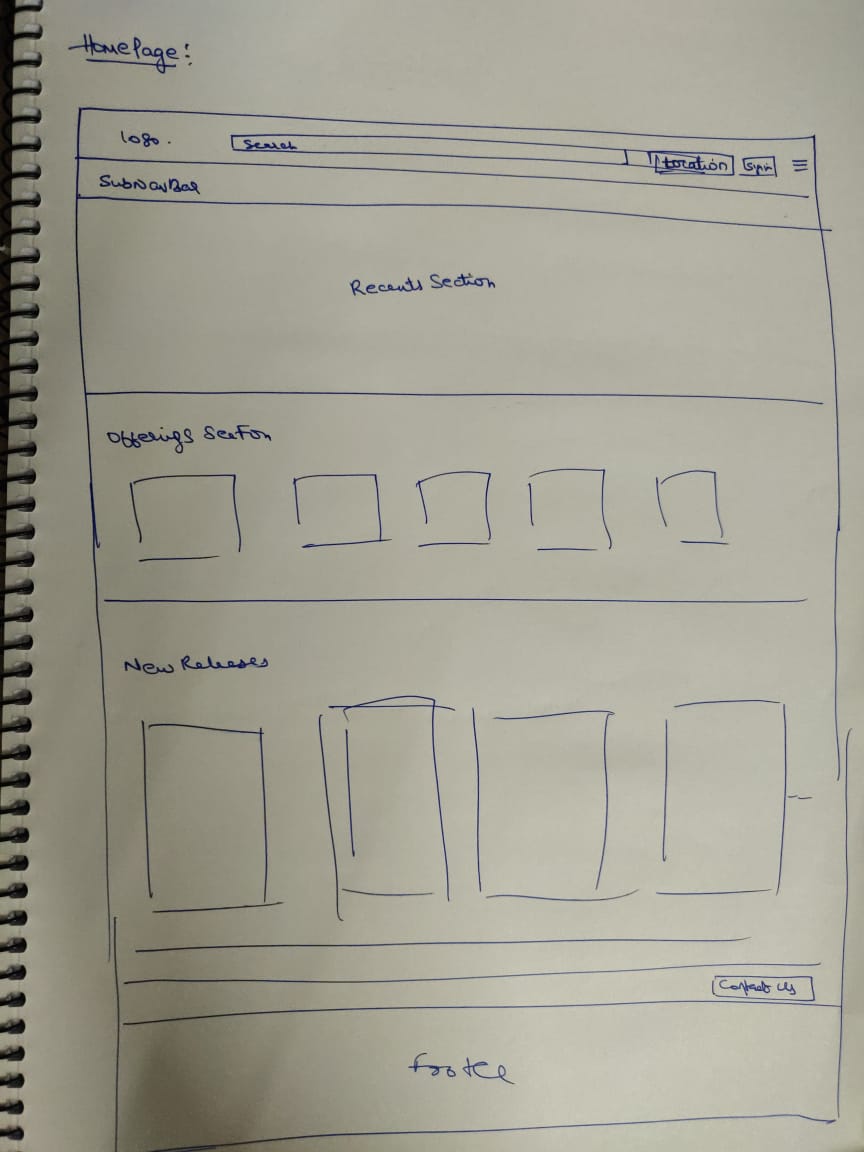 HomePage:
logo.
Search
Location
Signin
SubNavBar
Recents Section
Offerings Section
New Releases
Contact Us
Footer